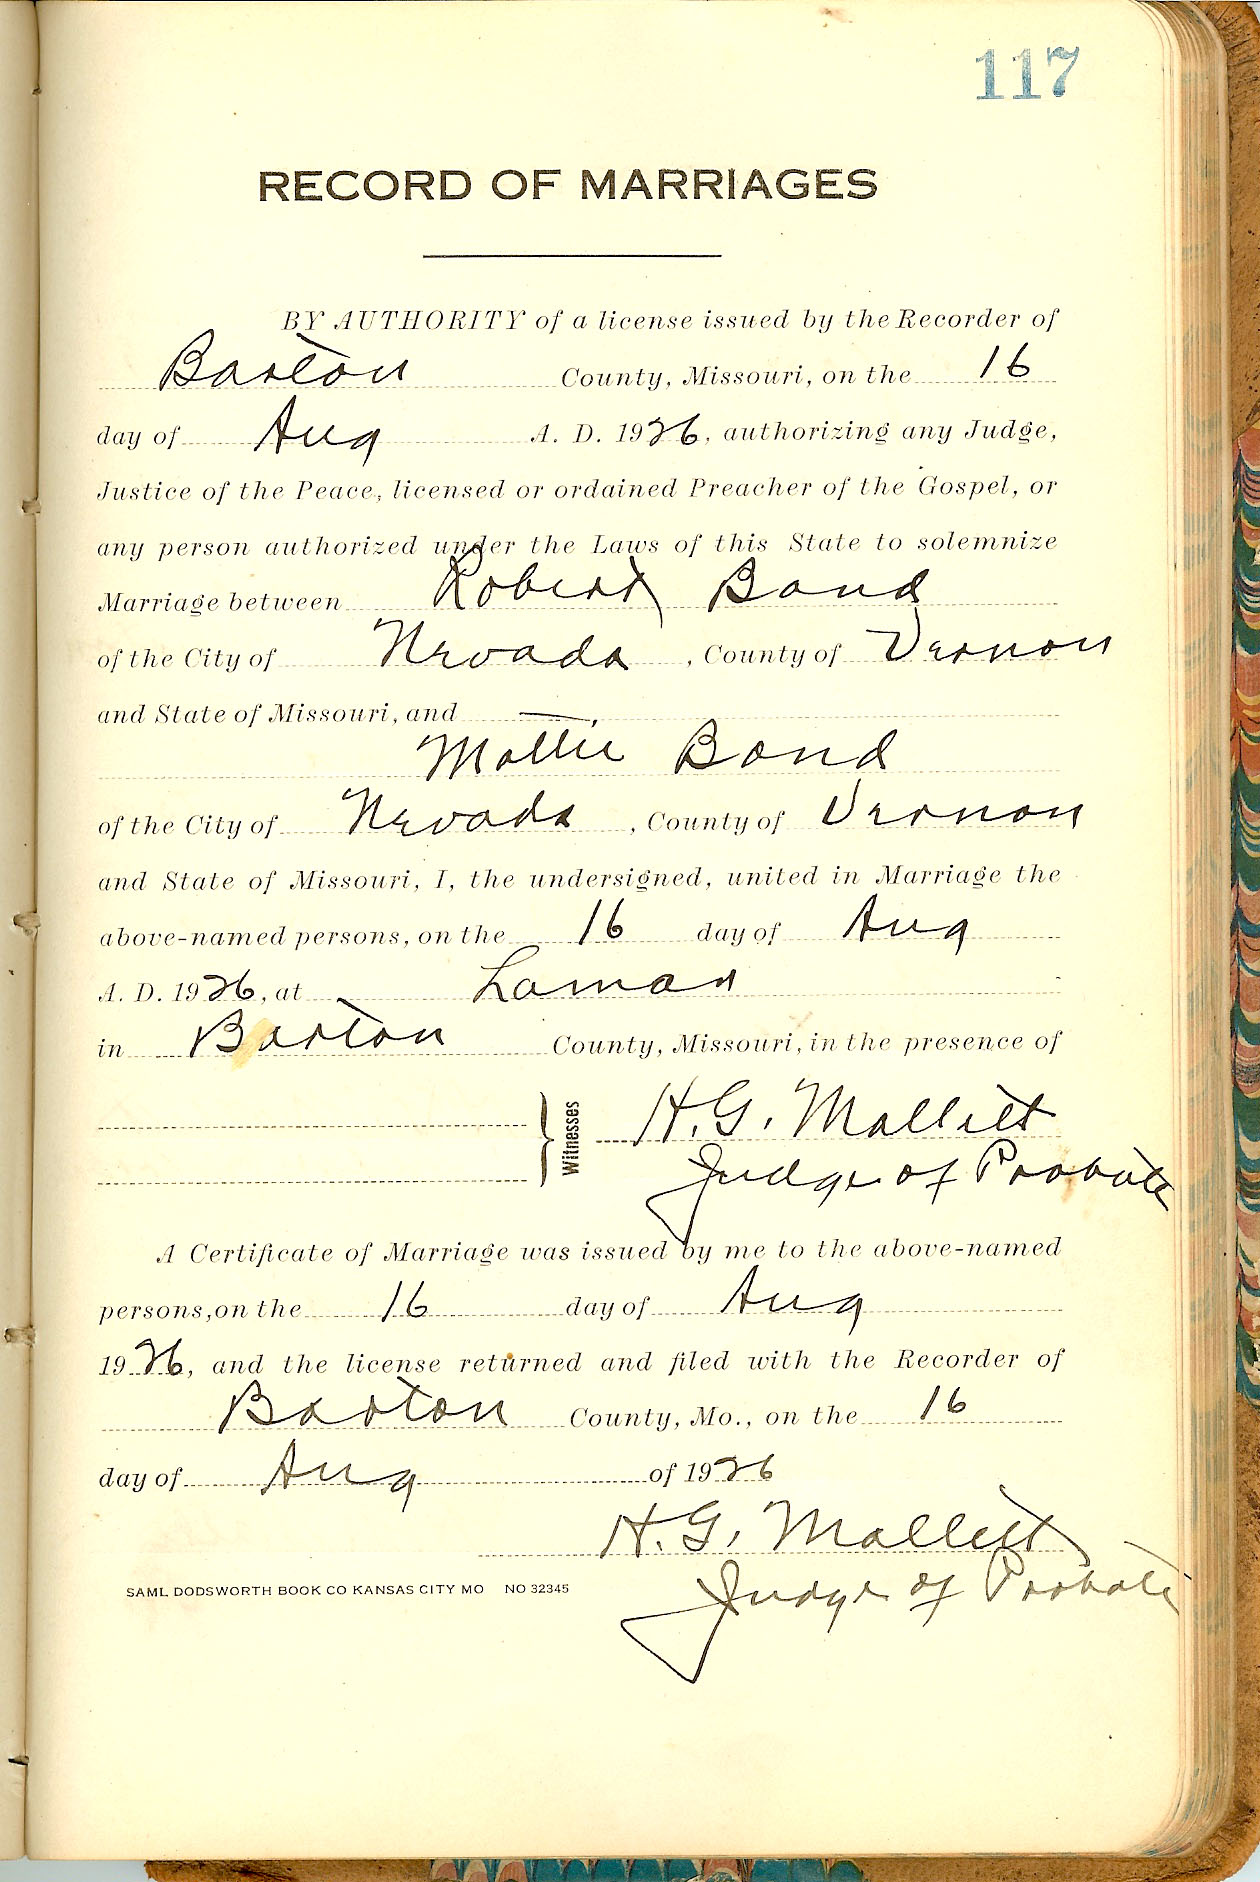 117
RECORD OF MARRIAGES
BY AUTHORITY of a license issued by the Recorder of
Barton County, Missouri, on the 16
day of Aug A. D. 1926, authorizing any Judge,
Justice of the Peace, licensed or ordained Preacher of the Gospel, or
any person authorized under the Laws of this State to solemnize
Marriage between Robert Bond
of the City of Nevada, County of Vernon
and State of Missouri, and
Mollie Bond
of the City of Nevada, County of Vernon
and State of Missouri, I, the undersigned, united in Marriage the
above-named persons, on the 16 day of Aug
A. D. 1926, at Lamar
in Barton County, Missouri, in the presence of
Witnesses H. G.
Judge of Probate
A Certificate of Marriage was issued by me to the above-named
persons, on the 16 day of Aug
1926, and the license returned and filed with the Recorder of
Barton County, Mo., on the 16
day of Aug of 1926
H. G.
SAML DODSWORTH BOOK CO KANSAS CITY MO NO 32345
Judge of Probate